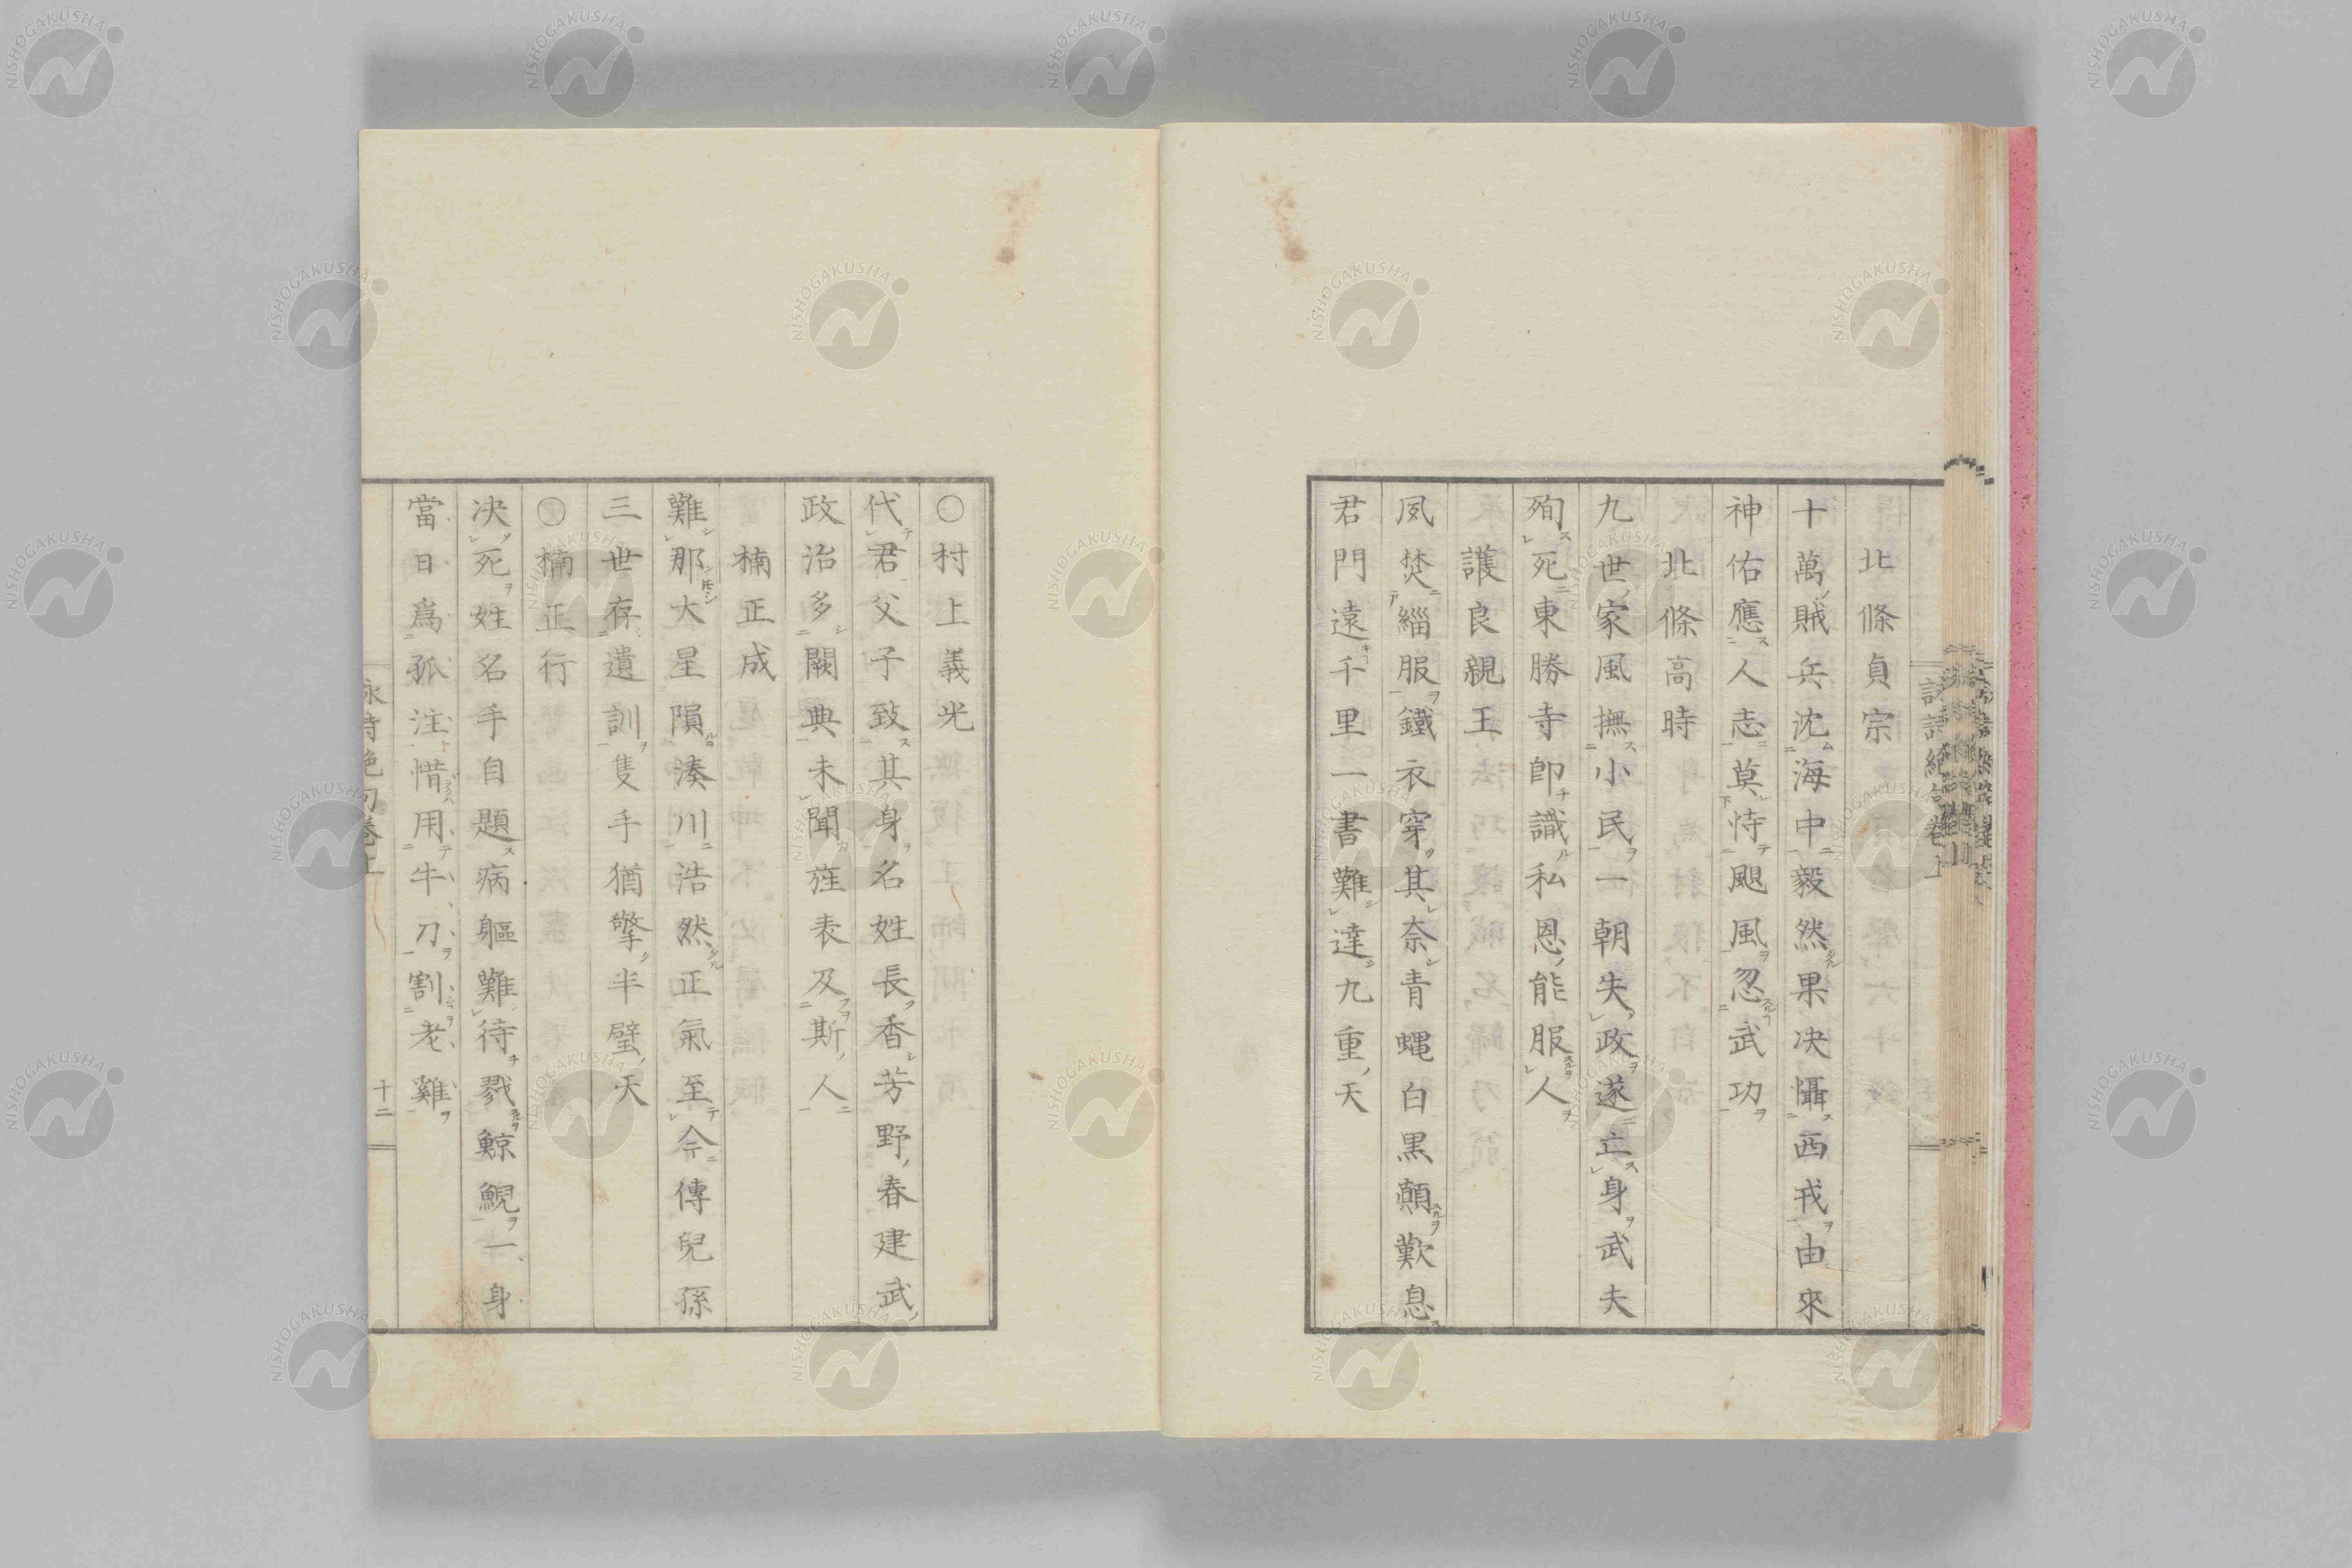 北條貞宗
十萬賊兵沈海中毅然果决懾西戎由來
神佑應人志莫恃颶風忽武功
北條高時
九世家風撫小民一朝失政遂亡身武夫
殉死東勝寺卽識私恩能服人
護良親王
夙焚緇服鐵衣穿其奈青蠅白黒顛歎息
君門遠千里一書難達九重天
〇村上義光
代君父子致其身名姓長香芳野春建武
政治多闕典未聞旌表及斯人
楠正成
難那大星隕湊川浩然正氣至今傳兒孫
三世存遺訓隻手猶擎半壁天
〇楠正行
决死姓名手自題病軀難待戮鯨鯢一身
當日爲孤注惜用牛刀割老雞
十二
NISHOGAKUSHA